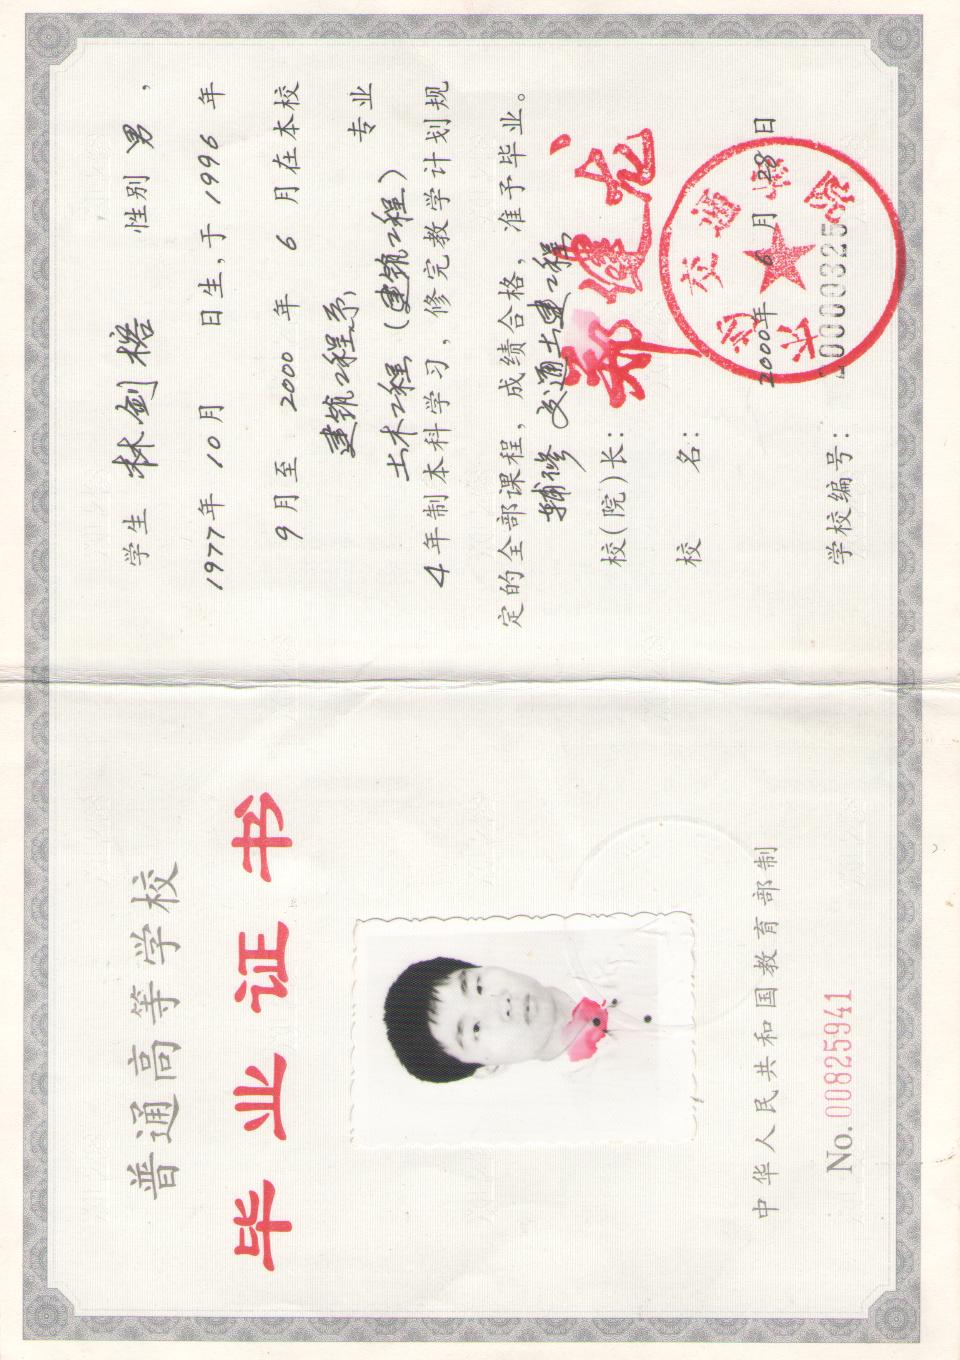 普通高等学校
毕业证书
中华人民共和国教育部制
No. 00825941
学生 林剑榕 性别 男，
1977年 10月 日生，于 1996 年
9月至 2000 年 6 月在本校
建筑工程系
土木工程（建筑工程） 专业
4 年制本科学习，修完教学计划规
定的全部课程，成绩合格，准予毕业。
辅修 交通土建工程
校（院）长：
校 名：
交通
2000年 6月 28日
学校编号： 20000325